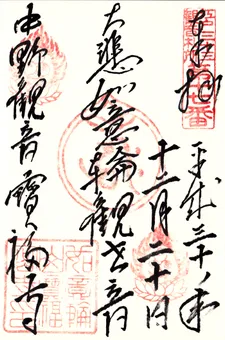 奉拝
平成三十年
十二月二十日
大悲如意輪観世音
中野観音寳福寺